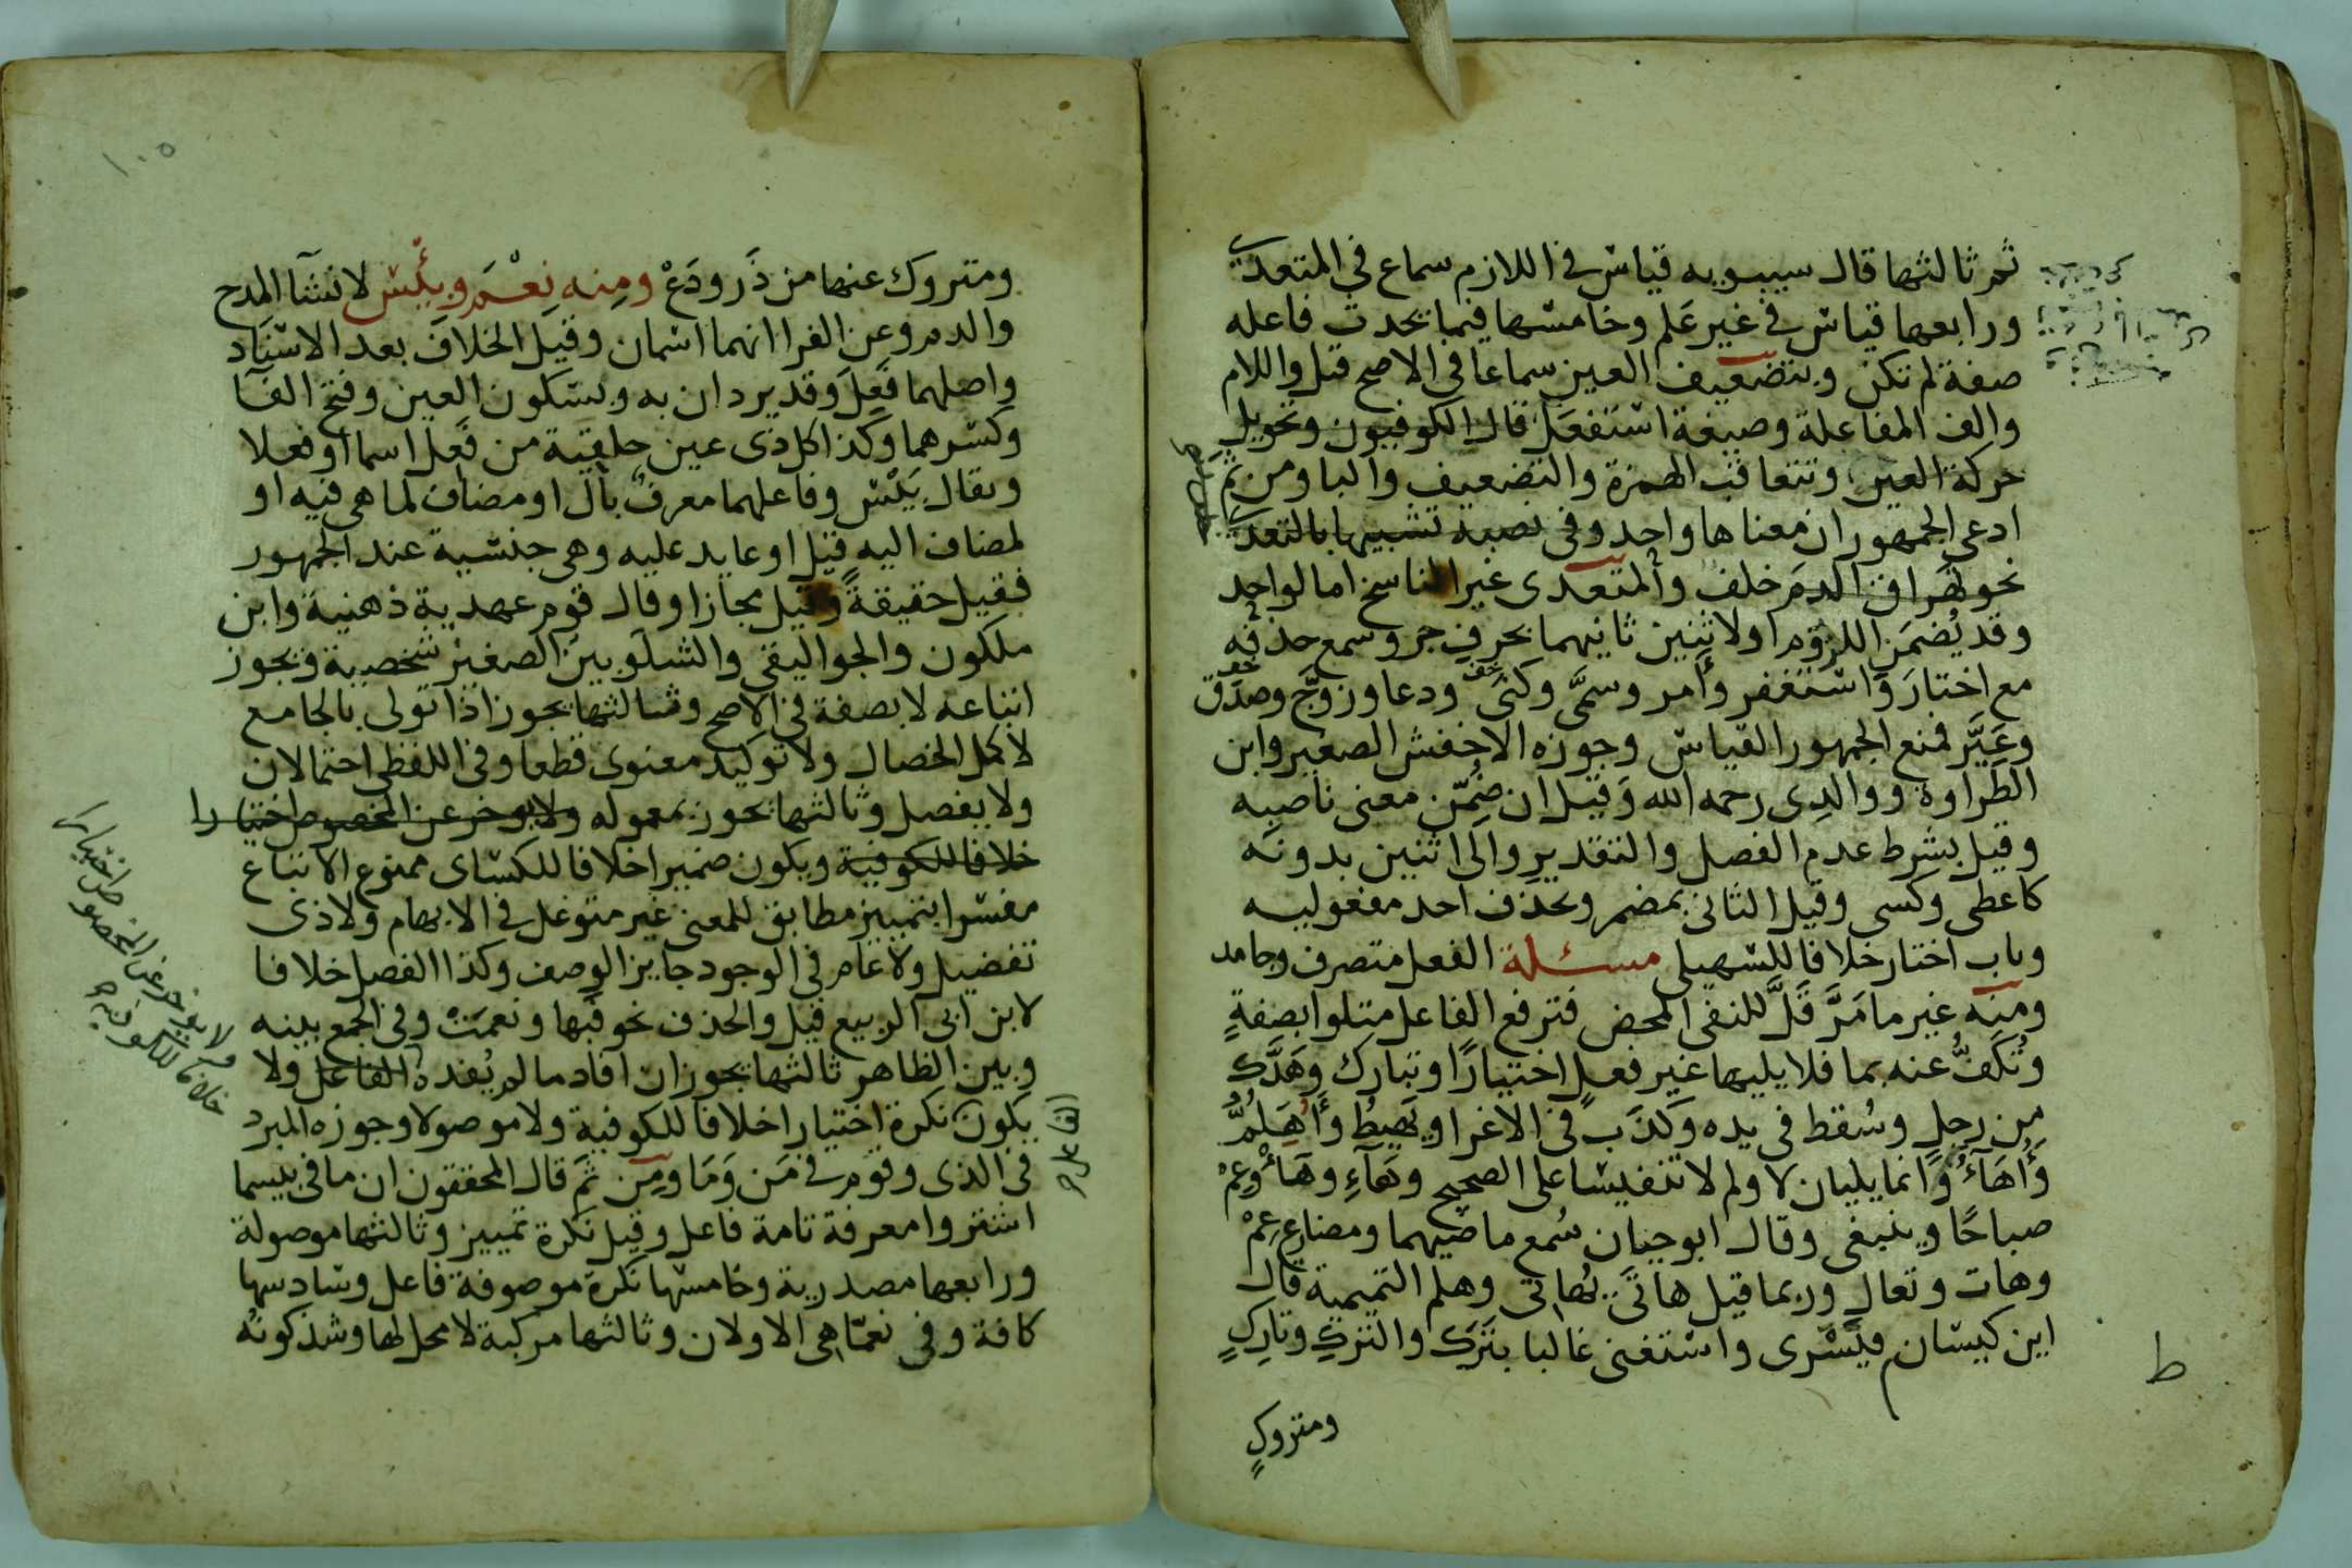 ثم ثالثها قال سيبويه قياس في اللازم سماع في المتعدي
ورابعها قياس في غير علم وخامسها فيما يحدث فاعله
صفة لم تكن وبتضعيف العين سماعا في الاصح قيل واللام
والف المفاعلة وصيغة استفعل قال الكوفيون وتحويل
حركة العين وتتعاقب الهمزة والتضعيف والبا ومن ثم
ادعى الجمهور ان معناها واحد وفي نصبه تشبيها بالتعدي
نحو تهراق الدم خلف والمتعدى غير الناسخ اما لواحد
وقد يُضمَن اللزوم او لاثنين ثانيهما بحرف جر وسمع حذفه
مع اختارَ واستغفر وأمر وسمَّى وكنى ودعا وزوَّج وصدق
وعَيَّر فمنع الجمهور القياس وجوزه الاخفش الصغير وابن
الطراوة ووالدى رحمه الله وقيل ان ضُمّن معنى ناصبه
وقيل بشرط عدم الفصل والتقدير والى اثنين بدونه
كاعطى وكسى وقيل الثانى بمضمر ويحذف احد مفعوليه
وباب اختار خلافا للسهيلى مسئلة الفعل متصرف وجامد
ومنه غير ما مَرَّ قَلَّ للنفى المحض فترفع الفاعل متلوا بصفةٍ
وتُكَفُّ عنه بما فلا يليها غير فعلٍ اختيارًا وتبارك وهَدَّك
من رجلٍ وسُقط في يده وكذَب في الاغرا ويَهيطُ وأُهَلُمُّ
وأُهَاءُ وانما يليان لا ولم لا تنفيسا على الصحيح وهَاءِ وهَاءْ وعِمْ
صباحًا وينبغى وقال ابوحيان سُمع ماضيهما ومضارع عِمْ
وهات وتعال وربما قيل هاتَى يُهاتى وهلم التميمية قال
ابن كيسان ويَسْرى واستغنى غالبا بتَرَك والترك وتارِكٍ
ومتروكٍ
ومتروك عنها من ذَر ودَعْ ومنه نِعْمَ وبِئْسَ لانشآ المدح
والذم وعن الفرا انهما اسمان وقيل الخلاف بعد الاسناد
واصلهما فَعِلَ وقد يردان به وبسكون العين وفتح الفآ
وكسرهما وكذا كل ذى عين حلقية من فَعِل اسما او فعلا
ويقال بَيْسَ وفاعلهما معرف بأل او مضاف لما هى فيه او
لمضاف اليه قيل او عايد عليه وهى جنسية عند الجمهور
فقيل حقيقةً وقيل مجازا وقال قوم عهدية ذهنية وابن
ملكون والجواليقى والشلوبين الصغير شخصية ويجوز
اتباعه لا بصفة في الاصح وثالثها يجوز اذا تولى بالجامع
لاكمل الخصال ولا توكيد معنوى قطعا وفى اللفظى احتمالان
ولا يفصل وثالثها يجوز بمعموله ولا يوخر عن المخصوص اختيارا
خلافا للكوفية ويكون ضميرا خلافا للكساى ممنوع الاتباع
مفسرا بتمييز مطابق للمعنى غير متوغل في الابهام ولا ذى
تفضيل ولا عام في الوجود جايز الوصف وكذا الفصل خلافا
لابن ابى الربيع قيل والحذف نحو فبها ونعمَتْ وفى الجمع بينه
وبين الظاهر ثالثها يجوز ان افاد ما لم يُفده الفاعل ولا
يكون نكرة اختيارا خلافا للكوفية ولا موصولا وجوزه المبرد
فى الذى وقوم في مَن وَمَا ومن ثَم قال المحققون ان ما في بيسما
اشتروا معرفة تامة فاعل وقيل نكرة تمييز وثالثها موصولة
ورابعها مصدرية وخامسها نكرة موصوفة فاعل وسادسها
كافة وفى نعمّا هى الاولان وثالثها مركبة لا محل لها وشذ كونه
ولا يوخر عن المخصوص اختيارا
خلافا للكوفية
الفاعل
ط
١٠٥